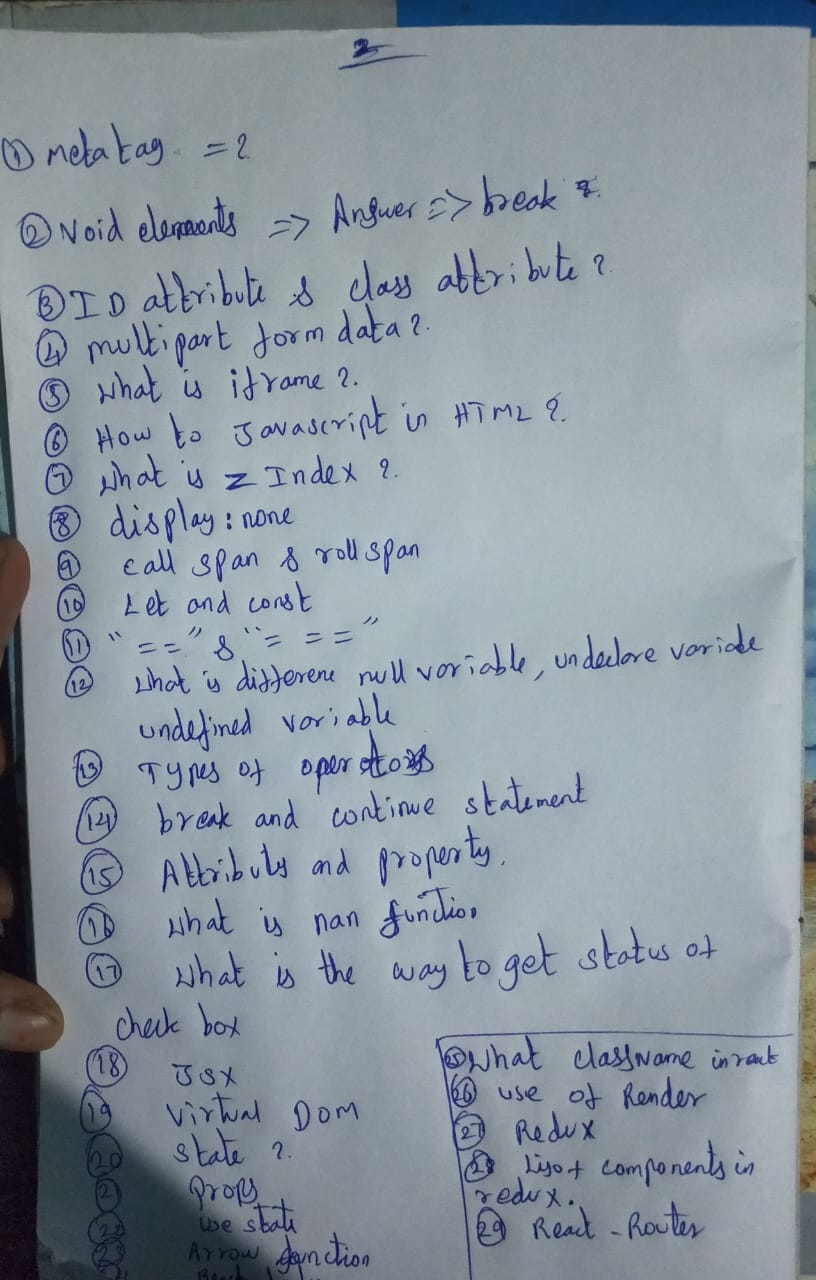 2
① meta tag = ?
② Void elements => Answer => break &.
③ ID attribute & class attribute ?
④ multipart form data ?.
⑤ what is iframe ?.
⑥ How to Javascript in HTML ?.
⑦ what is z Index ?.
⑧ display : none
⑨ call span & roll span
⑩ Let and const
⑪ "==" & "==="
⑫ what is differene null variable, undeclare variable
undefined variable
⑬ Types of operators
⑭ break and continue statement
⑮ Attributs and property.
⑯ what is nan function
⑰ what is the way to get status of
check box
⑱ JSX
⑲ Virtual Dom
⑳ state ?.
㉑ Props
㉒ use state
㉓ Arrow function
㉕ What className in reat
㉖ use of Render
㉗ Redux
㉘ List components in
redux.
㉙ React - Router